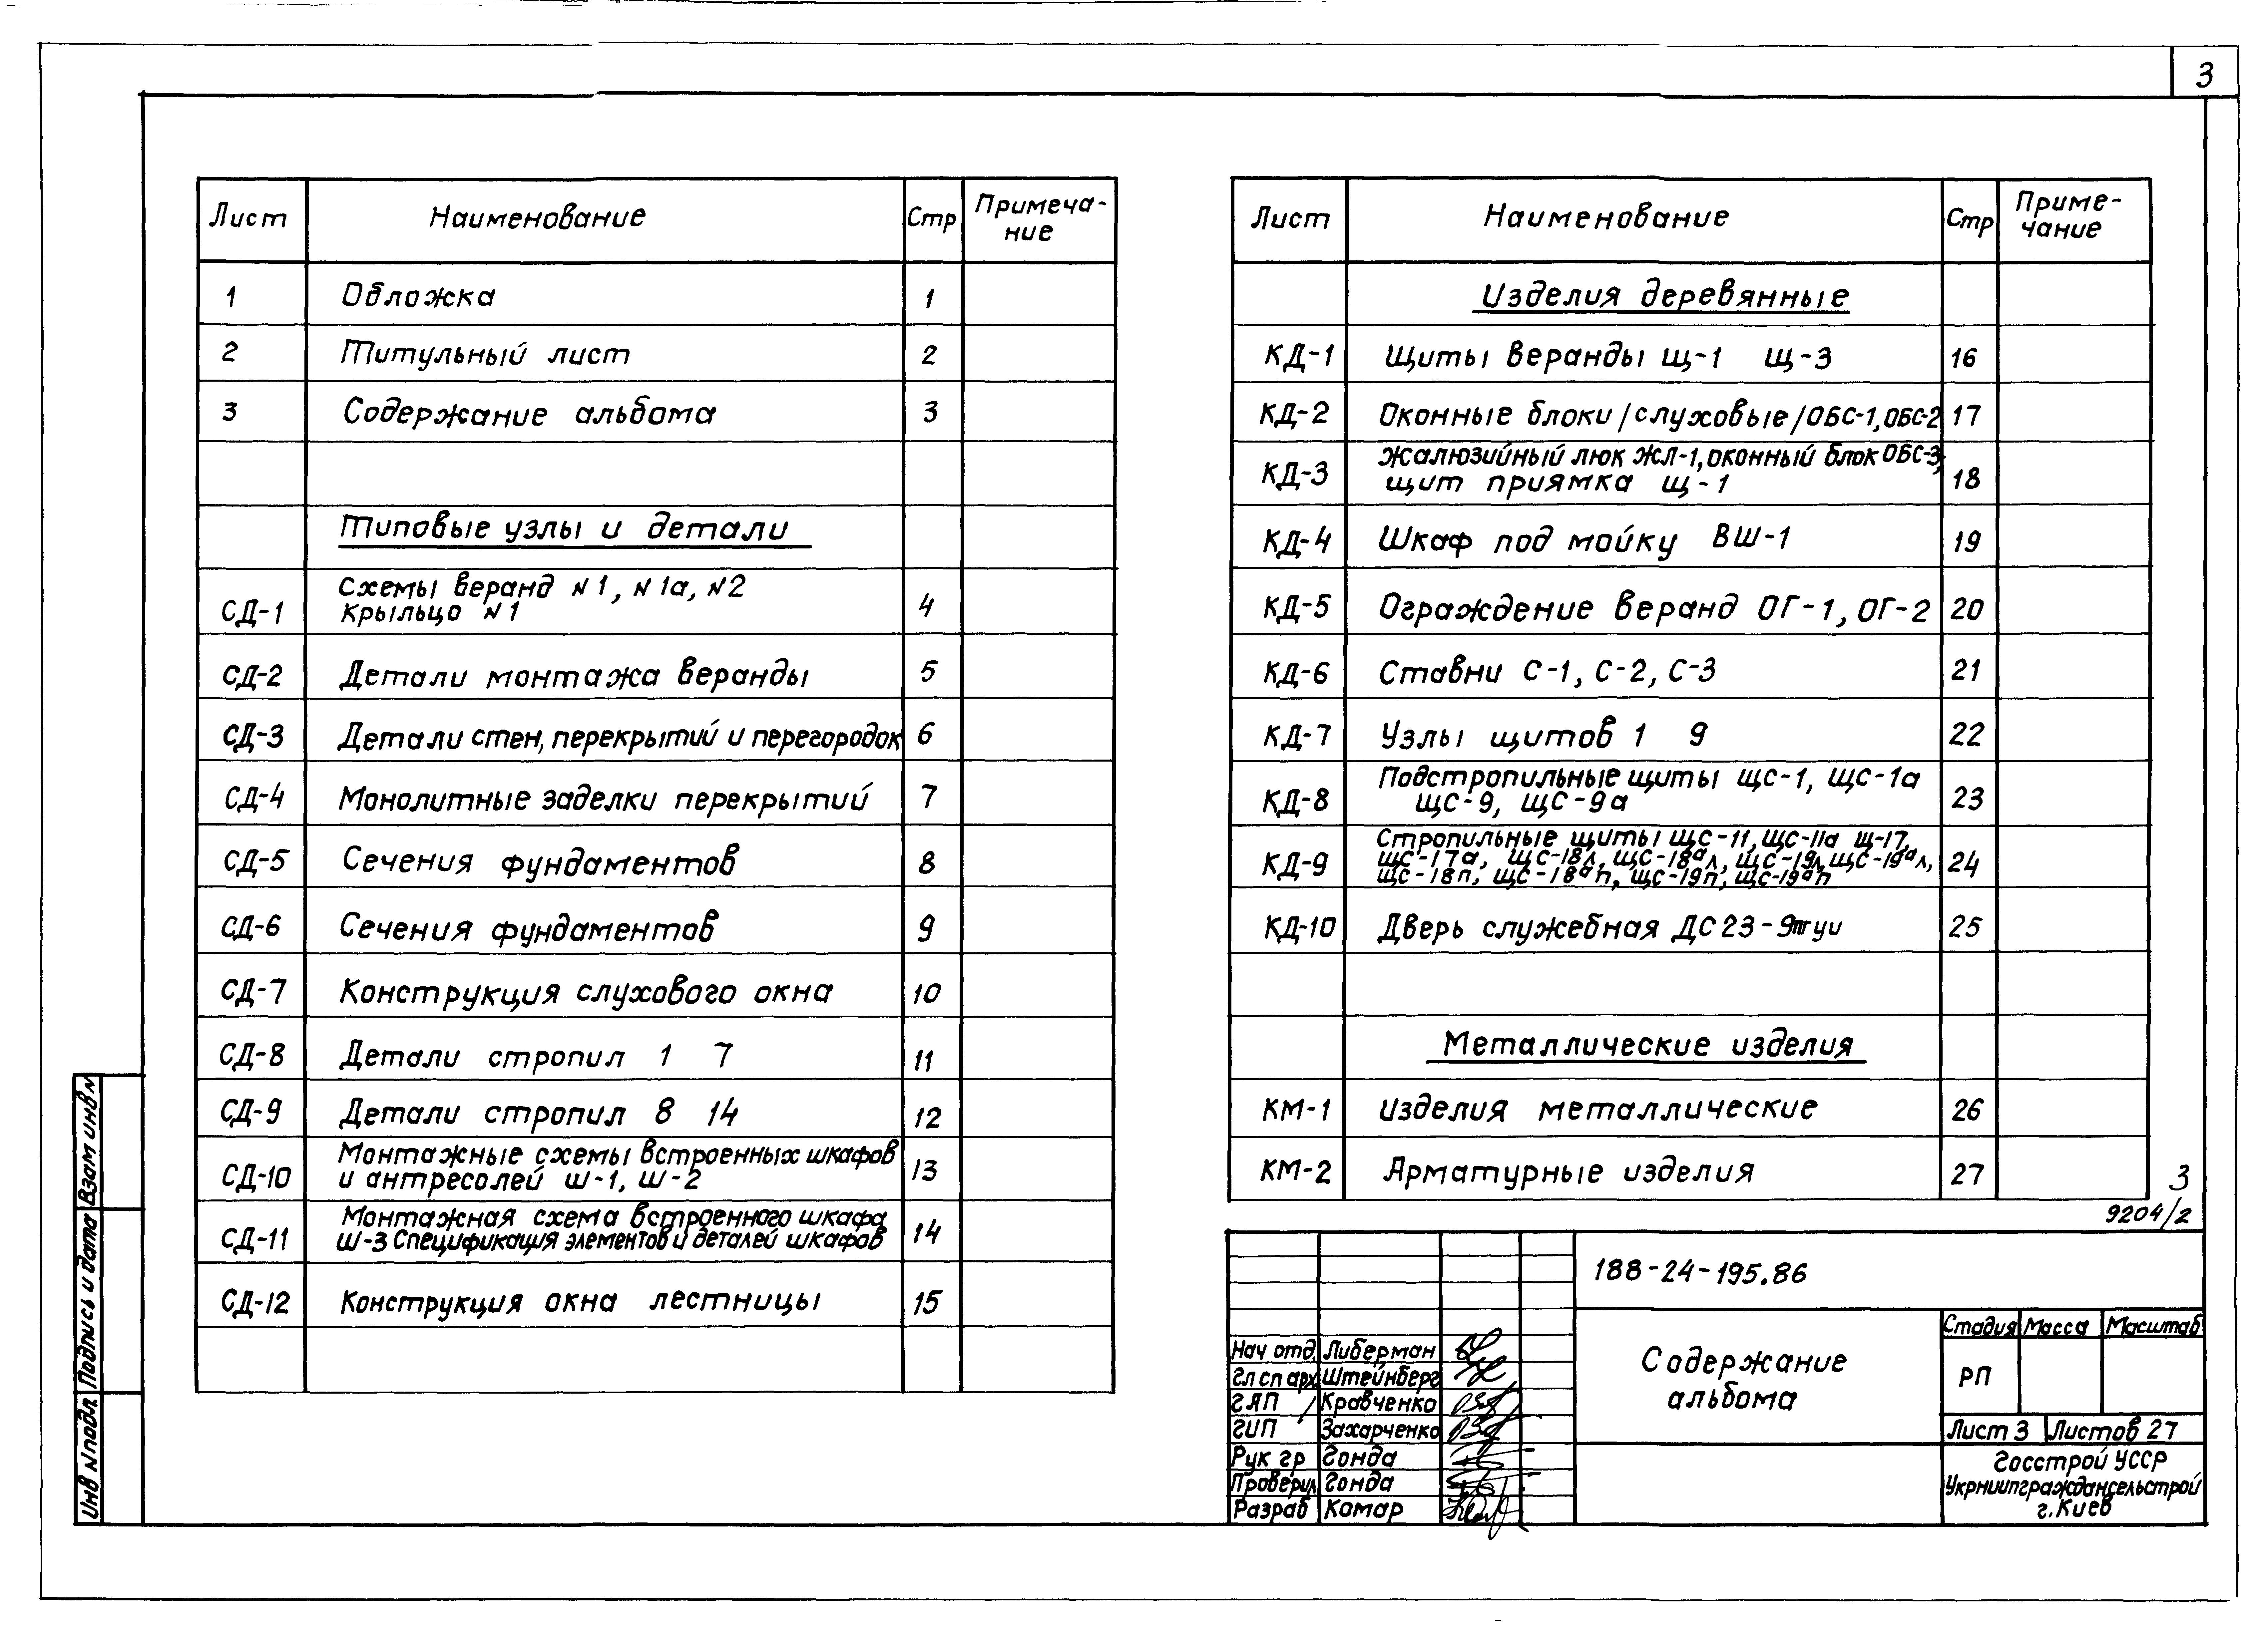 3
Лист Наименование Стр Примеча-
ние
1 Обложка 1
2 Титульный лист 2
3 Содержание альбома 3
Типовые узлы и детали
Схемы веранд N1, N1а, N2
СД-1 Крыльцо N1 4
СД-2 Детали монтажа веранды 5
СД-3 Детали стен, перекрытий и перегородок 6
СД-4 Монолитные заделки перекрытий 7
СД-5 Сечения фундаментов 8
СД-6 Сечения фундаментов 9
СД-7 Конструкция слухового окна 10
СД-8 Детали стропил 1 7 11
СД-9 Детали стропил 8 14 12
Монтажные схемы встроенных шкафов
СД-10 и антресолей Ш-1, Ш-2 13
Монтажная схема встроенного шкафа
СД-11 Ш-3 Спецификация элементов и деталей шкафов 14
СД-12 Конструкция окна лестницы 15
Лист Наименование Стр Приме-
чание
Изделия деревянные
КД-1 Щиты веранды Щ-1 Щ-3 16
КД-2 Оконные блоки /слуховые/ ОБС-1, ОБС-2 17
Жалюзийный люк ЖЛ-1, оконный блок ОБС-3,
КД-3 щит приямка Щ-1 18
КД-4 Шкаф под мойку ВШ-1 19
КД-5 Ограждение веранд ОГ-1, ОГ-2 20
КД-6 Ставни С-1, С-2, С-3 21
КД-7 Узлы щитов 1 9 22
Подстропильные щиты ЩС-1, ЩС-1а
КД-8 ЩС-9, ЩС-9а 23
Стропильные щиты ЩС-11, ЩС-11а Щ-17,
КД-9 ЩС-17а, ЩС-18л, ЩС-18ал, ЩС-19л, ЩС-19ал, 24
ЩС-18п, ЩС-18ап, ЩС-19п, ЩС-19ап
КД-10 Дверь служебная ДС23-9тгуи 25
Металлические изделия
КМ-1 Изделия металлические 26
КМ-2 Арматурные изделия 27
3
9204/2
188-24-195.86
Содержание
альбома
Стадия Масса Масштаб
РП
Лист 3 Листов 27
Госстрой УССР
Укрниипграждансельстрой
г. Киев
Нач отд. Либерман
Гл сп арх Штейнберг
ГАП Кравченко
ГИП Захарченко
Рук гр Гонда
Проверил Гонда
Разраб Комар
Взам инв N
Подпись и дата
Инв N подл.